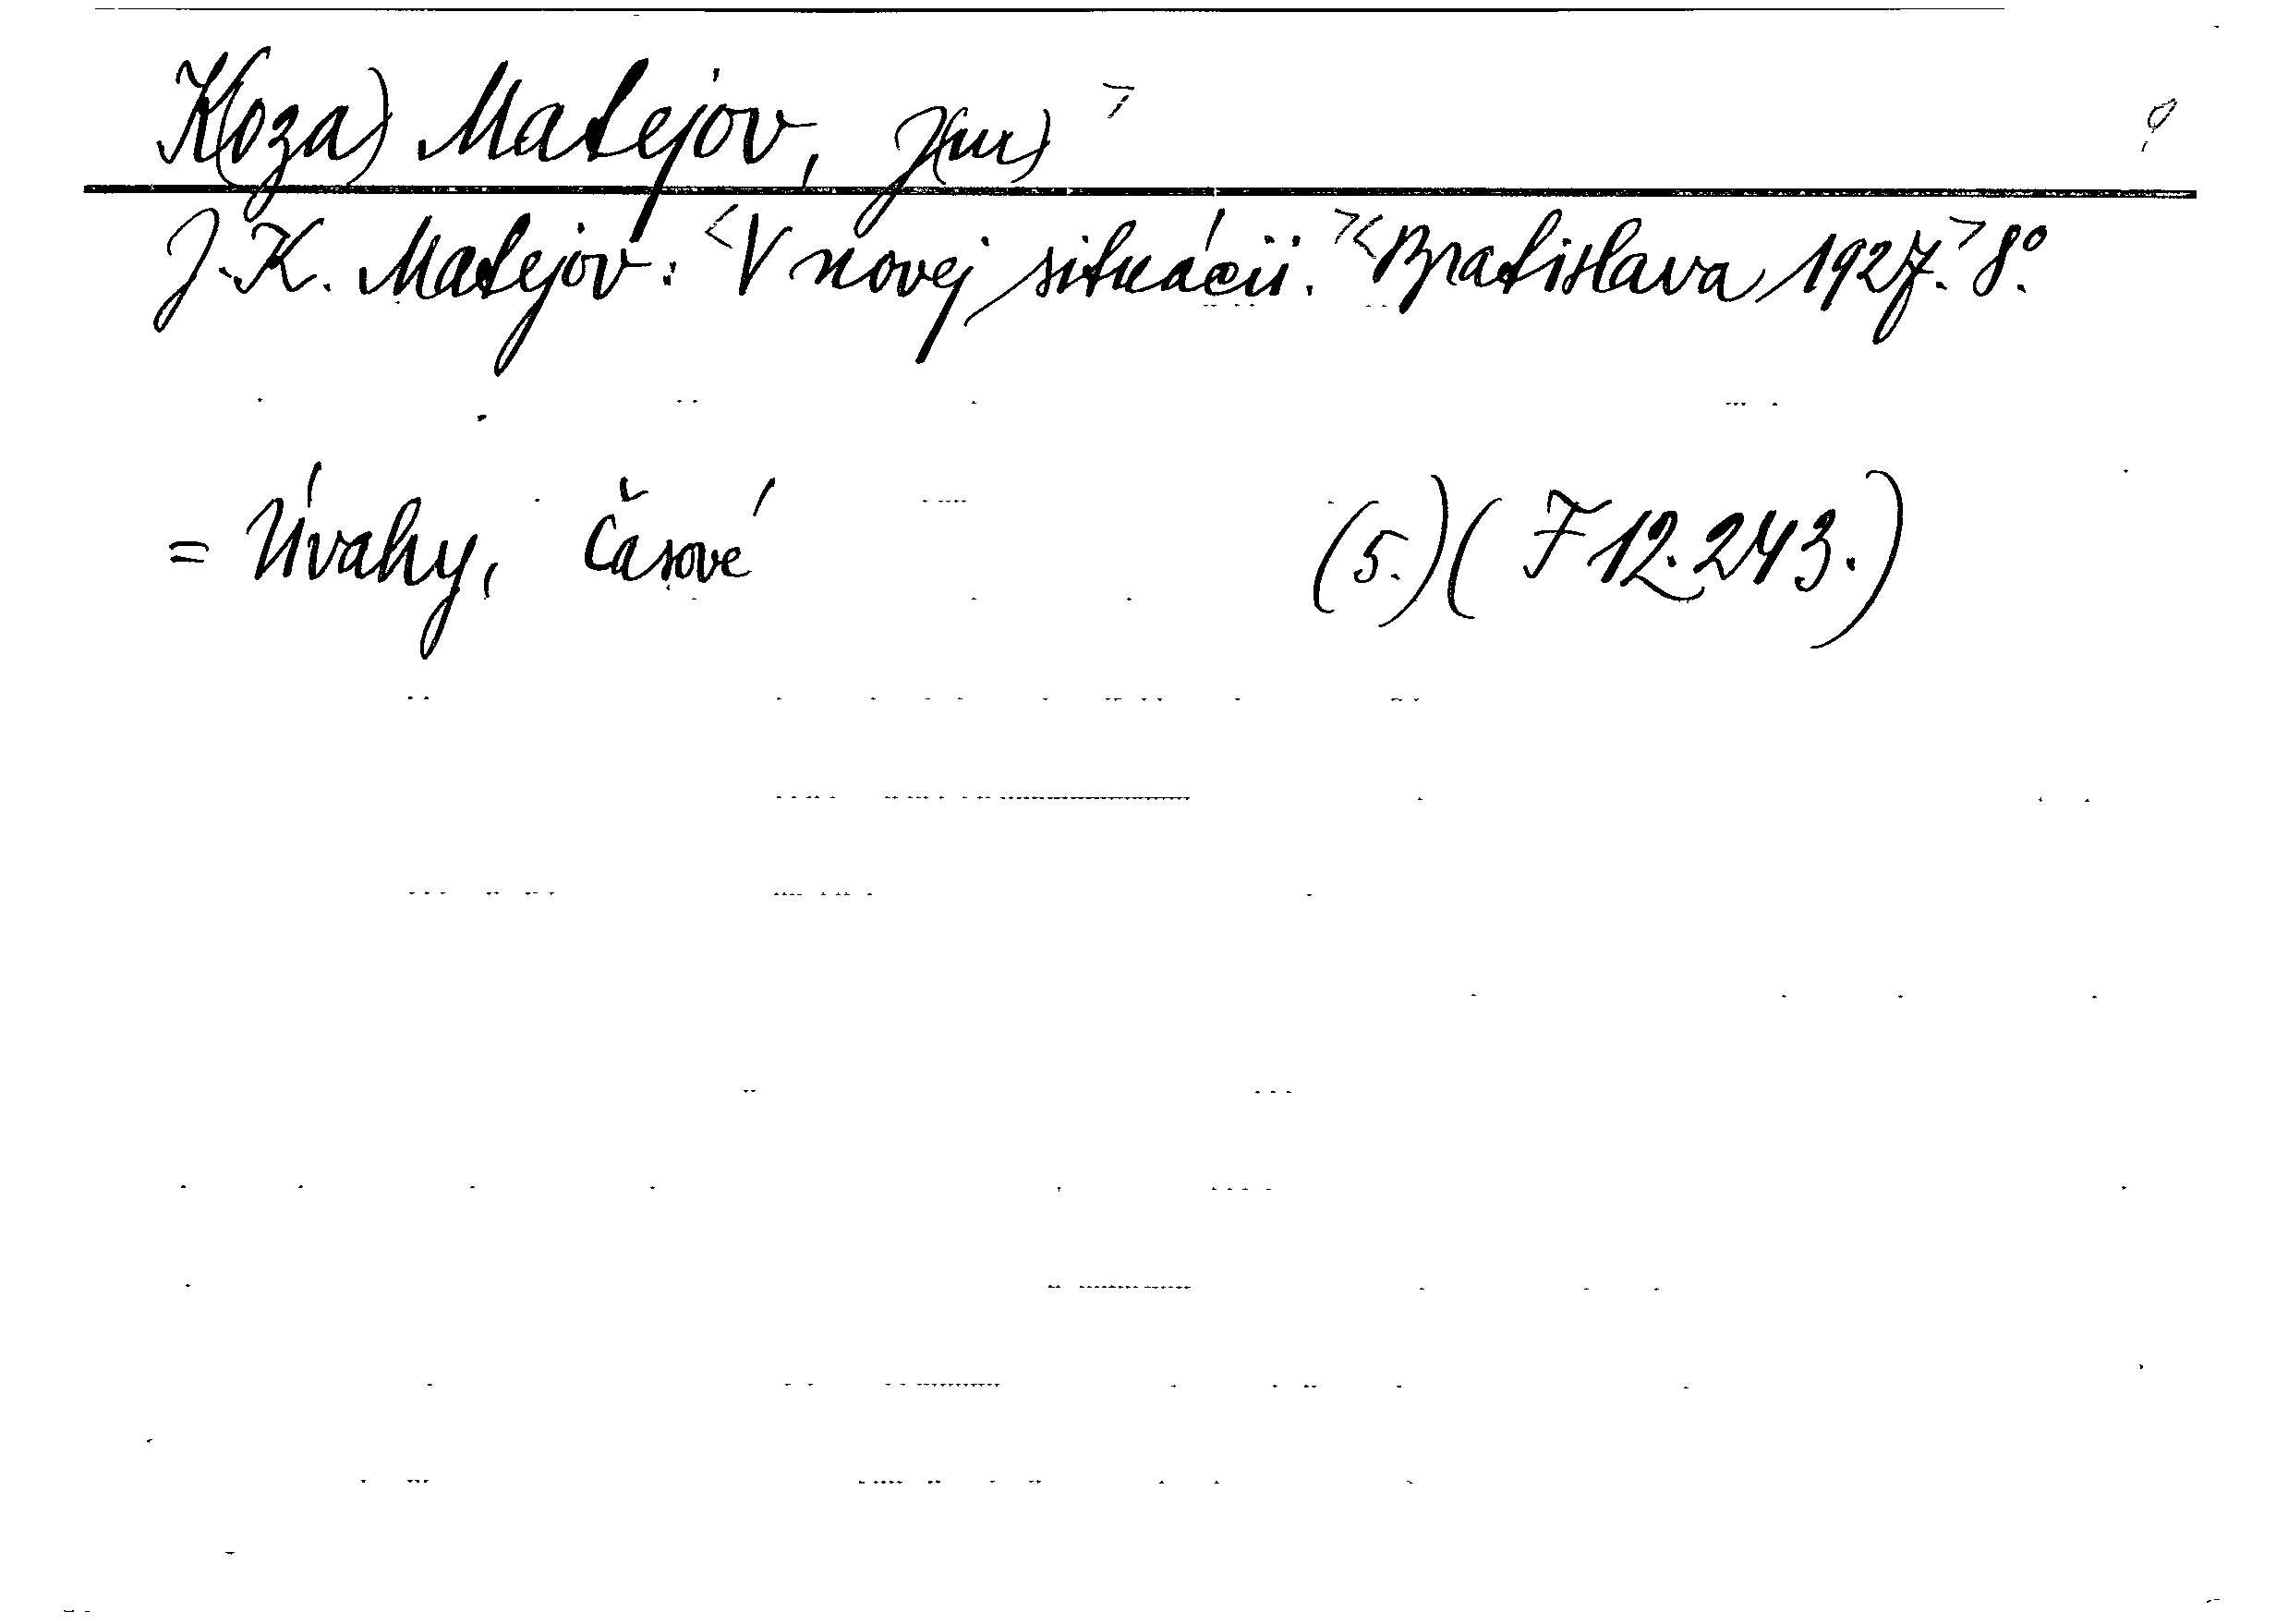 K(oza) Matejov, J(ur)
J. K. Matejov: <V novej situácii.><Bratislava 1927.> 8°.
= Úvahy, časové (5.) (F 12.243.)